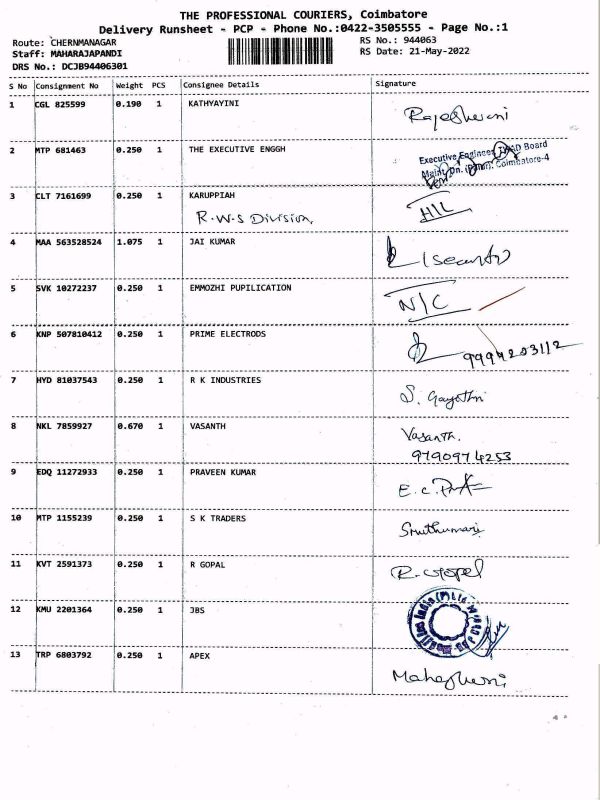 THE PROFESSIONAL COURIERS, Coimbatore
Delivery Runsheet - PCP - Phone No.:0422-3505555 - Page No.:1
Route: CHERNMANAGAR RS No.: 944063
Staff: MAHARAJAPANDI RS Date: 21-May-2022
DRS No.: DCJB94406301
S No Consignment No Weight PCS Consignee Details Signature
1 CGL 825599 0.190 1 KATHYAYINI
2 MTP 681463 0.250 1 THE EXECUTIVE ENGGH Executive Engineer, TWAD Board
Coimbatore-4
3 CLT 7161699 0.250 1 KARUPPIAH
R.W.S Division,
4 MAA 563528524 1.075 1 JAI KUMAR
5 SVK 10272237 0.250 1 EMMOZHI PUPILICATION N/C
6 KNP 507810412 0.250 1 PRIME ELECTRODS
7 HYD 81037543 0.250 1 R K INDUSTRIES S. Gayathri
8 NKL 7859927 0.670 1 VASANTH Vasanth.
9790974253
9 EDQ 11272933 0.250 1 PRAVEEN KUMAR
10 MTP 1155239 0.250 1 S K TRADERS
11 KVT 2591373 0.250 1 R GOPAL R. Gopal
12 KMU 2201364 0.250 1 JBS
13 TRP 6803792 0.250 1 APEX